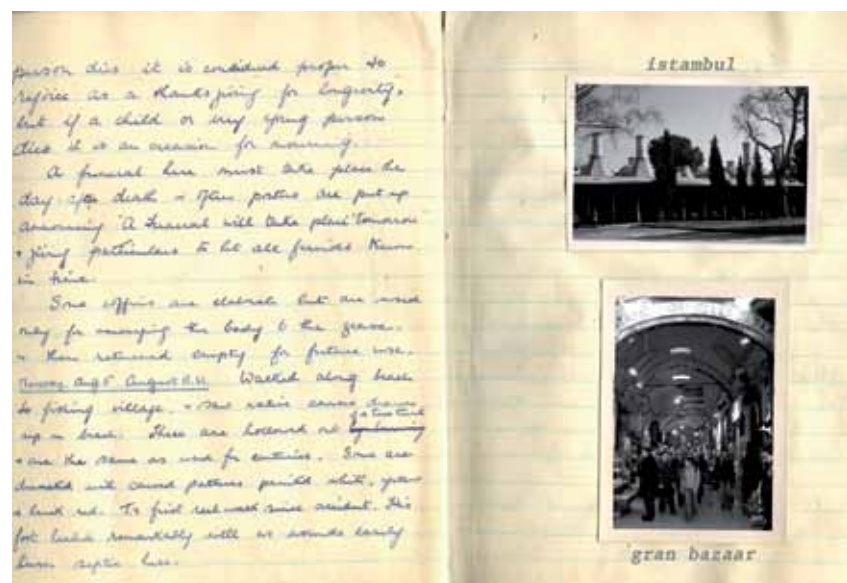 person dies it is considered proper to
rejoice as a thanksgiving for longevity,
but if a child or very young person
dies it is an occasion for mourning.
A funeral here must take place the
day after death & often posters are put up
announcing 'A Funeral will take place tomorrow
& giving particulars to let all friends know
in time.
Some coffins are elaborate but are used
only for carrying the body to the grave.
& then returned empty for future use.
August Walked along beach
to fishing village, & saw native canoes drawn
of a tree trunk
up on beach. These are hollowed out
& are the same as used for centuries. Some are
decorated with carved patterns painted white, green
& brick red. first real walk since accident. His
foot healed remarkably well as wounds easily
turn septic here.
istambul
gran bazaar